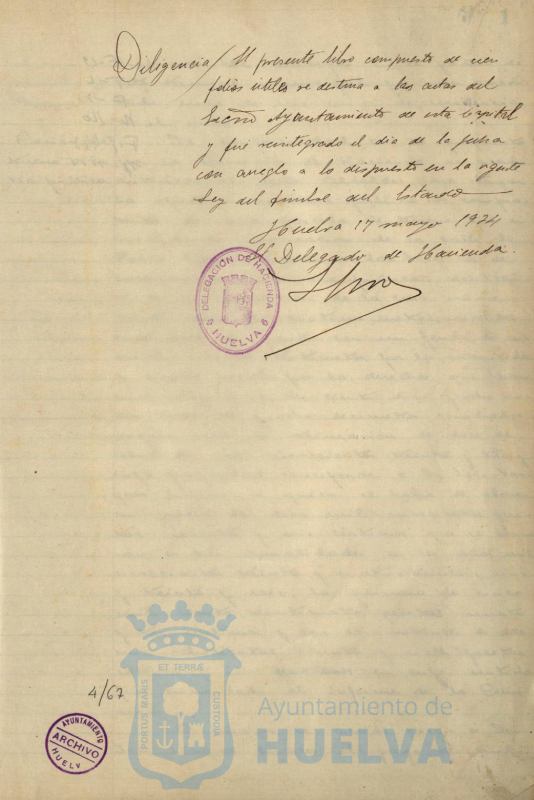 1
Diligencia/ El presente libro compuesto de cien
folios útiles se destina a las actas del
Excmo Ayuntamiento de esta Capital
y fué reintegrado el dia de la fecha
con arreglo a lo dispuesto en la vigente
Ley del timbre del Estado
Huelva 17 mayo 1924
El Delegado de Hacienda.
DELEGACION DE HACIENDA
HUELVA
4/67
AYUNTAMIENTO
ARCHIVO
HUELV
ET TERRÆ
PORTUS MARIS
CUSTODIA
Ayuntamiento de
HUELVA